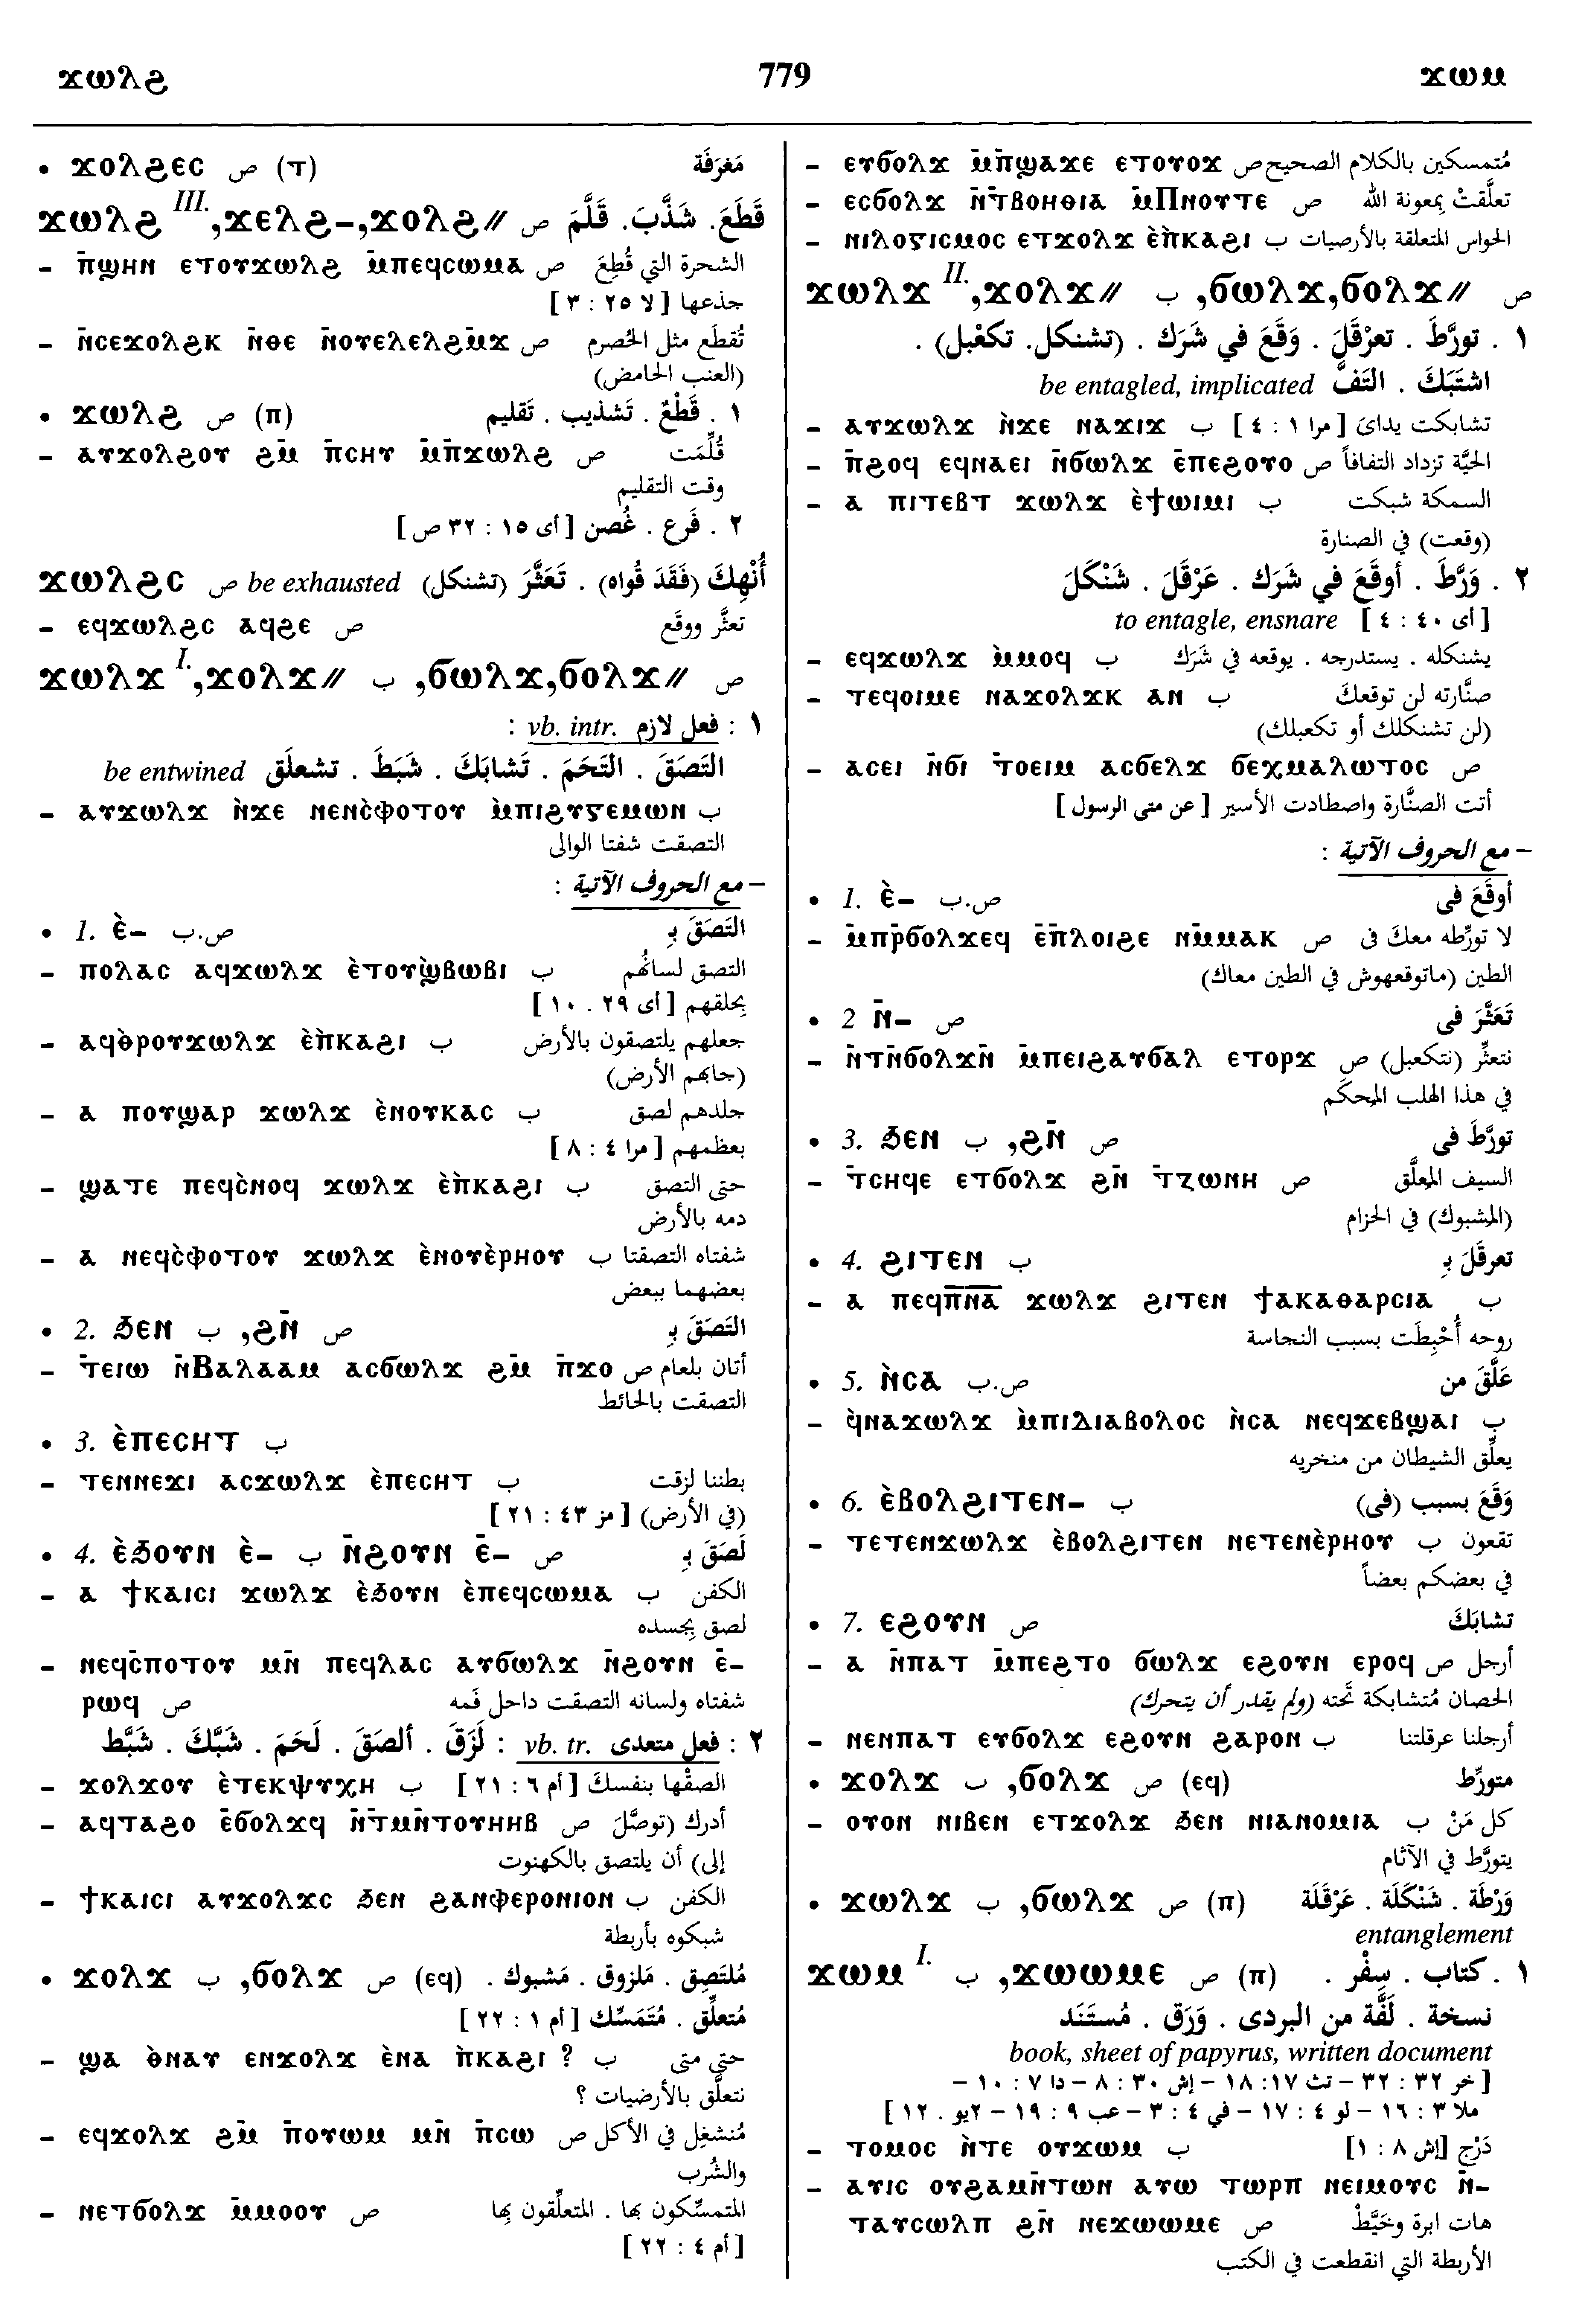 ϫⲱⲗϩ 779 ϫⲱⲙ
• ϫⲟⲗϩⲉⲥ ص (ⲧ) مَغرَفَة
ϫⲱⲗϩ III. ,ϫⲉⲗϩ–,ϫⲟⲗϩ// ص قَطَعَ. شَذَّبَ. قَلَّمَ
– ⲡ̄ϣⲏⲛ ⲉⲧⲟⲩϫⲱⲗϩ ⲙ̄ⲡⲉϥⲥⲱⲙⲁ ص الشحرة التي قُطِعَ
جذعها [ لا ٢٥ : ٣ ]
– ⲛ̄ⲥⲉϫⲟⲗϩⲕ ⲛ̄ⲑⲉ ⲛ̄ⲟⲩⲉⲗⲉⲗϩⲙ̄ϫ ص تُقطَع مثل الحُصرم
(العنب الحامض)
• ϫⲱⲗϩ ص (ⲡ) ١ . قَطْعٌ . تَشذيب . تَقليم
– ⲁⲩϫⲟⲗϩⲟⲩ ϩⲙ̄ ⲡ̄ⲥⲏⲩ ⲙ̄ⲡ̄ϫⲱⲗϩ ص قُلِّمَت
وقت التقليم
٢ . فَرع . غُصن [ أى ١٥ : ٣٢ ص ]
ϫⲱⲗϩⲥ ص be exhausted أُنْهِكَ (فَقَدَ قُواه) . تَعَثَّرَ (تشنكل)
– ⲉϥϫⲱⲗϩⲥ ⲁϥϩⲉ ص تعثَّر ووقَع
ϫⲱⲗϫ I. ,ϫⲟⲗϫ// ب ,ϭⲱⲗϫ,ϭⲟⲗϫ// ص
١ : فعل لازم vb. intr. :
be entwined التَصَقَ . التَحَمَ . تَشابَكَ . شَبَطَ . تشعلَق
– ⲁⲩϫⲱⲗϫ ⲛ̀ϫⲉ ⲛⲉⲛⲥ̀ⲫⲟⲧⲟⲩ ⲙ̀ⲡⲓϩⲩⲅⲉⲙⲱⲛ ب
التصقت شفتا الوالى
– مع الحروف الآتية :
• 1. ⲉ̀– ص.ب التَصَقَ بِـ
– ⲡⲟⲗⲁⲥ ⲁϥϫⲱⲗϫ ⲉ̀ⲧⲟⲩϣ̀ⲃⲱⲃⲓ ب التصق لسانُهم
بِحلقهم [ أى ٢٩ . ١٠ ]
– ⲁϥⲑ̀ⲣⲟⲩϫⲱⲗϫ ⲉ̀ⲡ̀ⲕⲁϩⲓ ب جعلهم يلتصقون بالأرض
(جابهم الأرض)
– ⲁ ⲡⲟⲩϣⲁⲣ ϫⲱⲗϫ ⲉ̀ⲛⲟⲩⲕⲁⲥ ب جلدهم لصق
بعظمهم [ مرا ٤ : ٨ ]
– ϣⲁⲧⲉ ⲡⲉϥⲥ̀ⲛⲟϥ ϫⲱⲗϫ ⲉ̀ⲡ̀ⲕⲁϩⲓ ب حتى التصق
دمه بالأرض
– ⲁ ⲛⲉϥⲥ̀ⲫⲟⲧⲟⲩ ϫⲱⲗϫ ⲉ̀ⲛⲟⲩⲉ̀ⲣⲏⲟⲩ ب شفتاه التصقتا
بعضهما ببعض
• 2. ϧⲉⲛ ب ,ϩⲛ̄ ص التَصَقَ بِـ
– ⲧ̄ⲉⲓⲱ ⲛ̄Ⲃⲁⲗⲁⲁⲙ ⲁⲥϭⲱⲗϫ ϩⲙ̄ ⲡ̄ϫⲟ ص أتان بلعام
التصقت بالحائط
• 3. ⲉ̀ⲡⲉⲥⲏⲧ ب
– ⲧⲉⲛⲛⲉϫⲓ ⲁⲥϫⲱⲗϫ ⲉ̀ⲡⲉⲥⲏⲧ ب بطننا لزقت
(في الأرض) [ مز ٤٣ : ٢١ ]
• 4. ⲉ̀ϧⲟⲩⲛ ⲉ̀– ب ⲛ̄ϩⲟⲩⲛ ⲉ̄– ص لَصَقَ بِـ
– ⲁ ϯⲕⲁⲓⲥⲓ ϫⲱⲗϫ ⲉ̀ϧⲟⲩⲛ ⲉ̀ⲡⲉϥⲥⲱⲙⲁ ب الكفن
لصق بِجسده
– ⲛⲉϥⲥ̄ⲡⲟⲧⲟⲩ ⲙⲛ̄ ⲡⲉϥⲗⲁⲥ ⲁⲩϭⲱⲗϫ ⲛ̄ϩⲟⲩⲛ ⲉ̄–
ⲣⲱϥ ص شفتاه ولسانه التصقت داخل فَمه
٢ : فعل متعدى vb. tr. : لَزَقَ . ألصَقَ . لَحَمَ . شَبَّكَ . شَبَّط
– ϫⲟⲗϫⲟⲩ ⲉ̀ⲧⲉⲕⲯⲩⲭⲏ ب الصقْها بنفسكَ [ أم ٦ : ٢١ ]
– ⲁϥⲧⲁϩⲟ ⲉ̄ϭⲟⲗϫϥ ⲛ̄ⲧⲙⲛ̄ⲧⲟⲩⲏⲏⲃ ص أدرك (توصَّلَ
إلى) أن يلتصق بالكهنوت
– ϯⲕⲁⲓⲥⲓ ⲁⲩϫⲟⲗϫⲥ ϧⲉⲛ ϩⲁⲛⲫⲉⲣⲟⲛⲓⲟⲛ ب الكفن
شبكوه بأربطة
• ϫⲟⲗϫ ب ,ϭⲟⲗϫ ص (ⲉϥ) مُلتَصِق . مَلزوق . مَشبوك .
مُتعلِّق . مُتَمَسِّك [ أم ١ : ٢٢ ]
– ϣⲁ ⲑ̀ⲛⲁⲩ ⲉⲛϫⲟⲗϫ ⲉ̀ⲛⲁ ⲡ̀ⲕⲁϩⲓ ? ب حتى متى
نتعلَّق بالأرضيات ؟
– ⲉϥϫⲟⲗϫ ϩⲙ̄ ⲡ̄ⲟⲩⲱⲙ ⲙⲛ̄ ⲡ̄ⲥⲱ ص مُنشغِل في الأكل
والشُرب
– ⲛⲉⲧϭⲟⲗϫ ⲙ̄ⲙⲟⲟⲩ ص المتمسِّكون بها . المتعلِّقون بِها
[ أم ٤ : ٢٢ ]
– ⲉⲩϭⲟⲗϫ ⲙ̄ⲡ̄ϣⲁϫⲉ ⲉⲧⲟⲩⲟϫ ص مُتمسكين بالكلام الصحيح
– ⲉⲥϭⲟⲗϫ ⲛ̄ⲧ̄ⲃⲟⲏⲑⲓⲁ ⲙ̄Ⲡⲛⲟⲩⲧⲉ ص تعلَّقتْ بِمعونة الله
– ⲛⲓⲗⲟⲅⲓⲥⲙⲟⲥ ⲉⲧϫⲟⲗϫ ⲉ̀ⲡ̀ⲕⲁϩⲓ ب الحواس المتعلقة بالأرضيات
ϫⲱⲗϫ II. ,ϫⲟⲗϫ// ب ,ϭⲱⲗϫ,ϭⲟⲗϫ// ص
١ . تورَّطَ . تعرْقَلَ . وَقَعَ في شَرَك . (تشنكل. تكعْبل) .
be entagled, implicated اشتَبَكَ . التَفَّ
– ⲁⲩϫⲱⲗϫ ⲛ̀ϫⲉ ⲛⲁϫⲓϫ ب تشابكت يداىَ [ مرا ١ : ٤ ]
– ⲡ̄ϩⲟϥ ⲉϥⲛⲁⲉⲓ ⲛ̄ϭⲱⲗϫ ⲉ̄ⲡⲉϩⲟⲩⲟ ص الحيَّة تزداد التفافاً
– ⲁ ⲡⲓⲧⲉⲃⲧ ϫⲱⲗϫ ⲉ̀ϯⲱⲓⲙⲓ ب السمكة شبكت
(وقعت) في الصنارة
٢ . وَرَّطَ . أوقَعَ في شَرَك . عَرْقَلَ . شَنْكَلَ
to entagle, ensnare [ أى ٤٠ : ٤ ]
– ⲉϥϫⲱⲗϫ ⲙ̀ⲙⲟϥ ب يشنكله . يستدرجه . يوقعه في شَرَك
– ⲧⲉϥⲟⲓⲙⲉ ⲛⲁϫⲟⲗϫⲕ ⲁⲛ ب صنَّارته لن توقعكَ
(لن تشنكلك أو تكعبلك)
– ⲁⲥⲉⲓ ⲛ̄ϭⲓ ⲧ̄ⲟⲉⲓⲙ ⲁⲥϭⲉⲗϫ ϭⲉⲭⲙⲁⲗⲱⲧⲟⲥ ص
أتت الصنَّارة واصطادت الأسير [ عن متى الرسول ]
– مع الحروف الآتية :
• 1. ⲉ̀– ص.ب أوقَعَ فى
– ⲙ̄ⲡⲣ̄ϭⲟⲗϫⲉϥ ⲉ̄ⲡ̄ⲗⲟⲓϩⲉ ⲛⲙ̄ⲙⲁⲕ ص لا تورِّطه معكَ فى
الطين (ماتوقعهوش في الطين معاك)
• 2 ⲛ̄– ص تَعَثَّرَ فى
– ⲛ̄ⲧⲛ̄ϭⲟⲗϫⲛ̄ ⲙ̄ⲡⲉⲓϩⲁⲩϭⲁⲗ ⲉⲧⲟⲣϫ ص نتعثِّر (نتكعبل)
في هذا الهلب المِحكَم
• 3. ϧⲉⲛ ب ,ϩⲛ̄ ص تورَّطَ فى
– ⲧ̄ⲥⲏϥⲉ ⲉⲧϭⲟⲗϫ ϩⲛ̄ ⲧ̄ⲍⲱⲛⲏ ص السيف المعلَّق
(المشبوك) في الحزام
• 4. ϩⲓⲧⲉⲛ ب تعرقَلَ بِـ
– ⲁ ⲡⲉϥⲡ̅ⲛ̅ⲁ̅ ϫⲱⲗϫ ϩⲓⲧⲉⲛ ϯⲁⲕⲁⲑⲁⲣⲥⲓⲁ ب
روحه أُحْبِطَت بسبب النجاسة
• 5. ⲛ̀ⲥⲁ ص.ب عَلَّقَ من
– ϥ̀ⲛⲁϫⲱⲗϫ ⲙ̀ⲡⲓⲇⲓⲁⲃⲟⲗⲟⲥ ⲛ̀ⲥⲁ ⲛⲉϥϫⲉⲃϣⲁⲓ ب
يعلِّق الشيطان من منخريه
• 6. ⲉ̀ⲃⲟⲗϩⲓⲧⲉⲛ– ب وَقَعَ بسبب (فى)
– ⲧⲉⲧⲉⲛϫⲱⲗϫ ⲉ̀ⲃⲟⲗϩⲓⲧⲉⲛ ⲛⲉⲧⲉⲛⲉ̀ⲣⲏⲟⲩ ب تقعون
في بعضكم بعضاً
• 7. ⲉϩⲟⲩⲛ ص تشابَكَ
– ⲁ ⲛ̄ⲡⲁⲧ ⲙ̄ⲡⲉϩⲧⲟ ϭⲱⲗϫ ⲉϩⲟⲩⲛ ⲉⲣⲟϥ ص أرجل
الحصان مُتشابكة تَحته (ولم يقدر أن يتحرك)
– ⲛⲉⲛⲡⲁⲧ ⲉⲩϭⲟⲗϫ ⲉϩⲟⲩⲛ ϩⲁⲣⲟⲛ ب أرجلنا عرقلتنا
• ϫⲟⲗϫ ب ,ϭⲟⲗϫ ص (ⲉϥ) متورِّط
– ⲟⲩⲟⲛ ⲛⲓⲃⲉⲛ ⲉⲧϫⲟⲗϫ ϧⲉⲛ ⲛⲓⲁⲛⲟⲙⲓⲁ ب كل مَنْ
يتورَّط في الآثام
• ϫⲱⲗϫ ب ,ϭⲱⲗϫ ص (ⲡ) وَرْطَة . شَنْكَلَة . عَرْقَلَة
entanglement
ϫⲱⲙ I. ب ,ϫⲱⲱⲙⲉ ص (ⲡ) ١ . كتاب . سِفْر .
نسخة . لَفَّة من البردى . وَرَق . مُستَنَد
book, sheet of papyrus, written document
[ خر ٣٢ : ٣٢ – تث ١٧: ١٨ – إش ٣٠ : ٨ – دا ٧ : ١٠ –
ملا ٣ : ١٦ – لو ٤ : ١٧ – في ٤ : ٣ – عب ٩ : ١٩ – ٢يو . ١٢ ]
– ⲧⲟⲙⲟⲥ ⲛ̀ⲧⲉ ⲟⲩϫⲱⲙ ب دَرْج [إش ٨ : ١]
– ⲁⲩⲓⲥ ⲟⲩϩⲁⲙⲛ̄ⲧⲱⲛ ⲁⲩⲱ ⲧⲱⲣⲡ ⲛⲉⲓⲙⲟⲩⲥ ⲛ̄–
ⲧⲁⲩⲥⲱⲗⲡ ϩⲛ̄ ⲛⲉϫⲱⲱⲙⲉ ص هات ابرة وخَيِّطْ
الأربطة التي انقطعت في الكتب